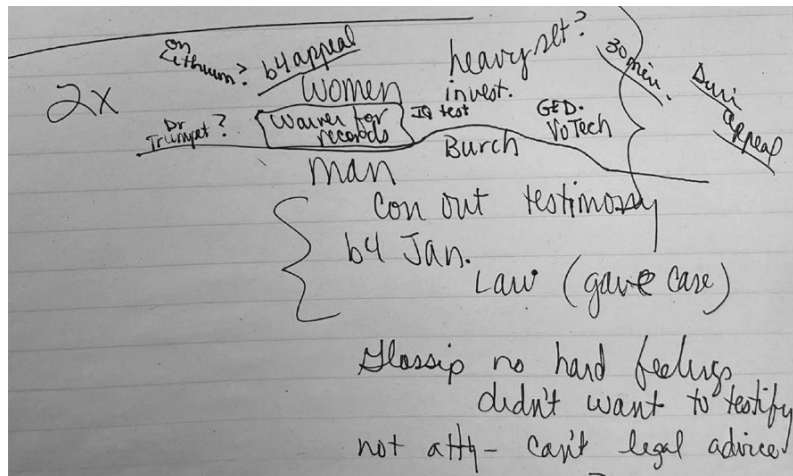 on
Lithium?
b4 appeal
heavy set?
30 min.
2x
women
invest.
Duri
appeal
Dr
Trumpet?
waiver for
records
IQ test
GED.
VoTech
Burch
man
con out testimony
b4 Jan.
Law (gave case)
Glossip no hard feelings
didn't want to testify
not atty - can't legal advice